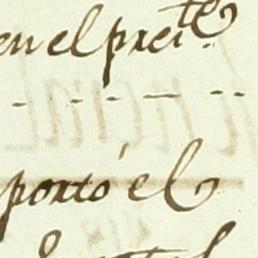 en el prete.
portó el